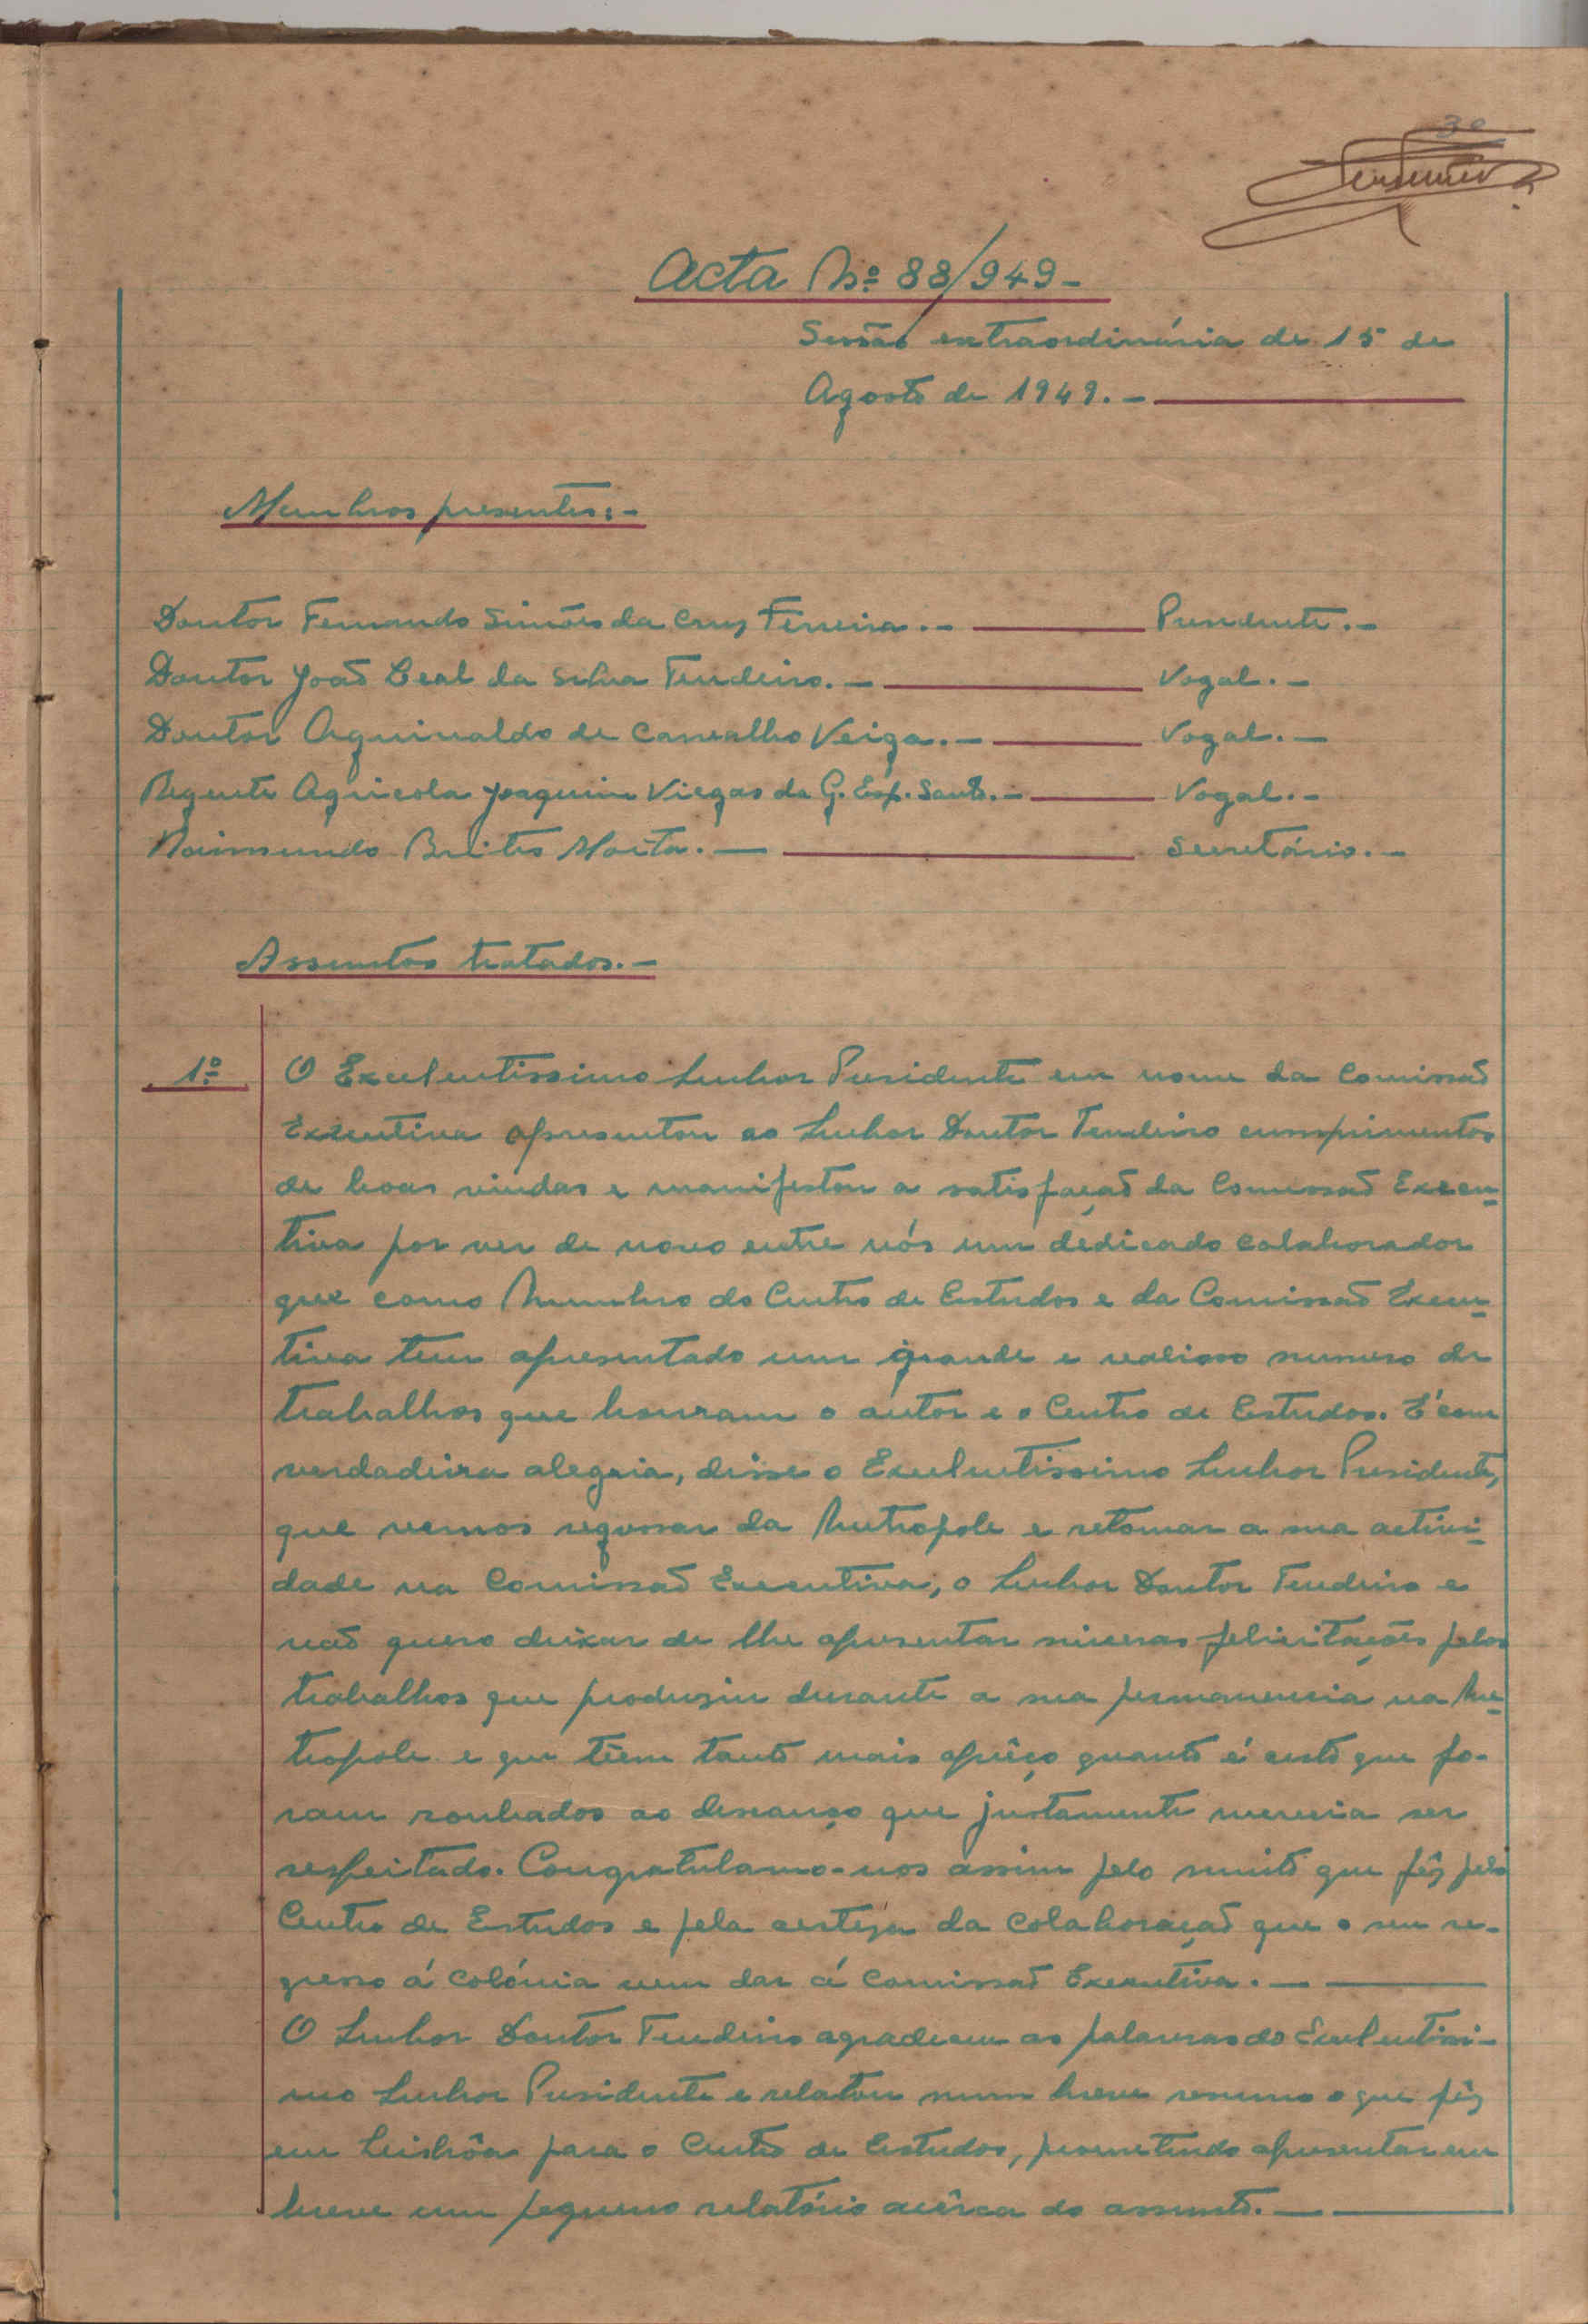 30
Acta Nº 88/949-
Sessão extraordinária de 15 de
Agosto de 1949.-
Membros presentes:-
Doutor Fernando Simões da Cruz Ferreira.- Presidente.-
Doutor João Leal da Silva Tendeiro.- Vogal.-
Doutor Aguinaldo de Carvalho Veiga.- Vogal.-
Regente Agricola Joaquim Viegas da G. Esp. Santo.- Vogal.-
Raimundo Brites Moita.- Secretário.-
Assuntos tratados.-
1º O Excelentissimo Senhor Presidente em nome da Comissão
Executiva apresentou ao Senhor Doutor Tendeiro cumprimentos
de boas vindas e manifestou a satisfação da Comissão Execu-
tiva por ver de novo entre nós um dedicado colaborador
que como Membro do Centro de Estudos e da Comissão Execu-
tiva tem apresentado um grande e valioso numero de
trabalhos que honram o autor e o Centro de Estudos. É com
verdadeira alegria, disse o Excelentissimo Senhor Presidente,
que vemos regressar da Metropole e retomar a sua activi-
dade na Comissão Executiva, o Senhor Doutor Tendeiro e
não quero deixar de lhe apresentar sinceras felicitações pelos
trabalhos que produziu durante a sua permanencia na Me-
tropole e que têem tanto mais aprêço quanto é certo que fo-
ram roubados ao descanço que justamente merecia ser
respeitado. Congratulamo-nos assim pelo muito que fêz pelo
Centro de Estudos e pela certeza da colaboração que o seu re-
gresso á Colónia vem dar á Comissão Executiva.-
O Senhor Doutor Tendeiro agradeceu as palavras do Excelentissi-
mo Senhor Presidente e relatou num breve resumo o que fêz
em Lisbôa para o Centro de Estudos, prometendo apresentar em
breve um pequeno relatório acêrca do assunto.-